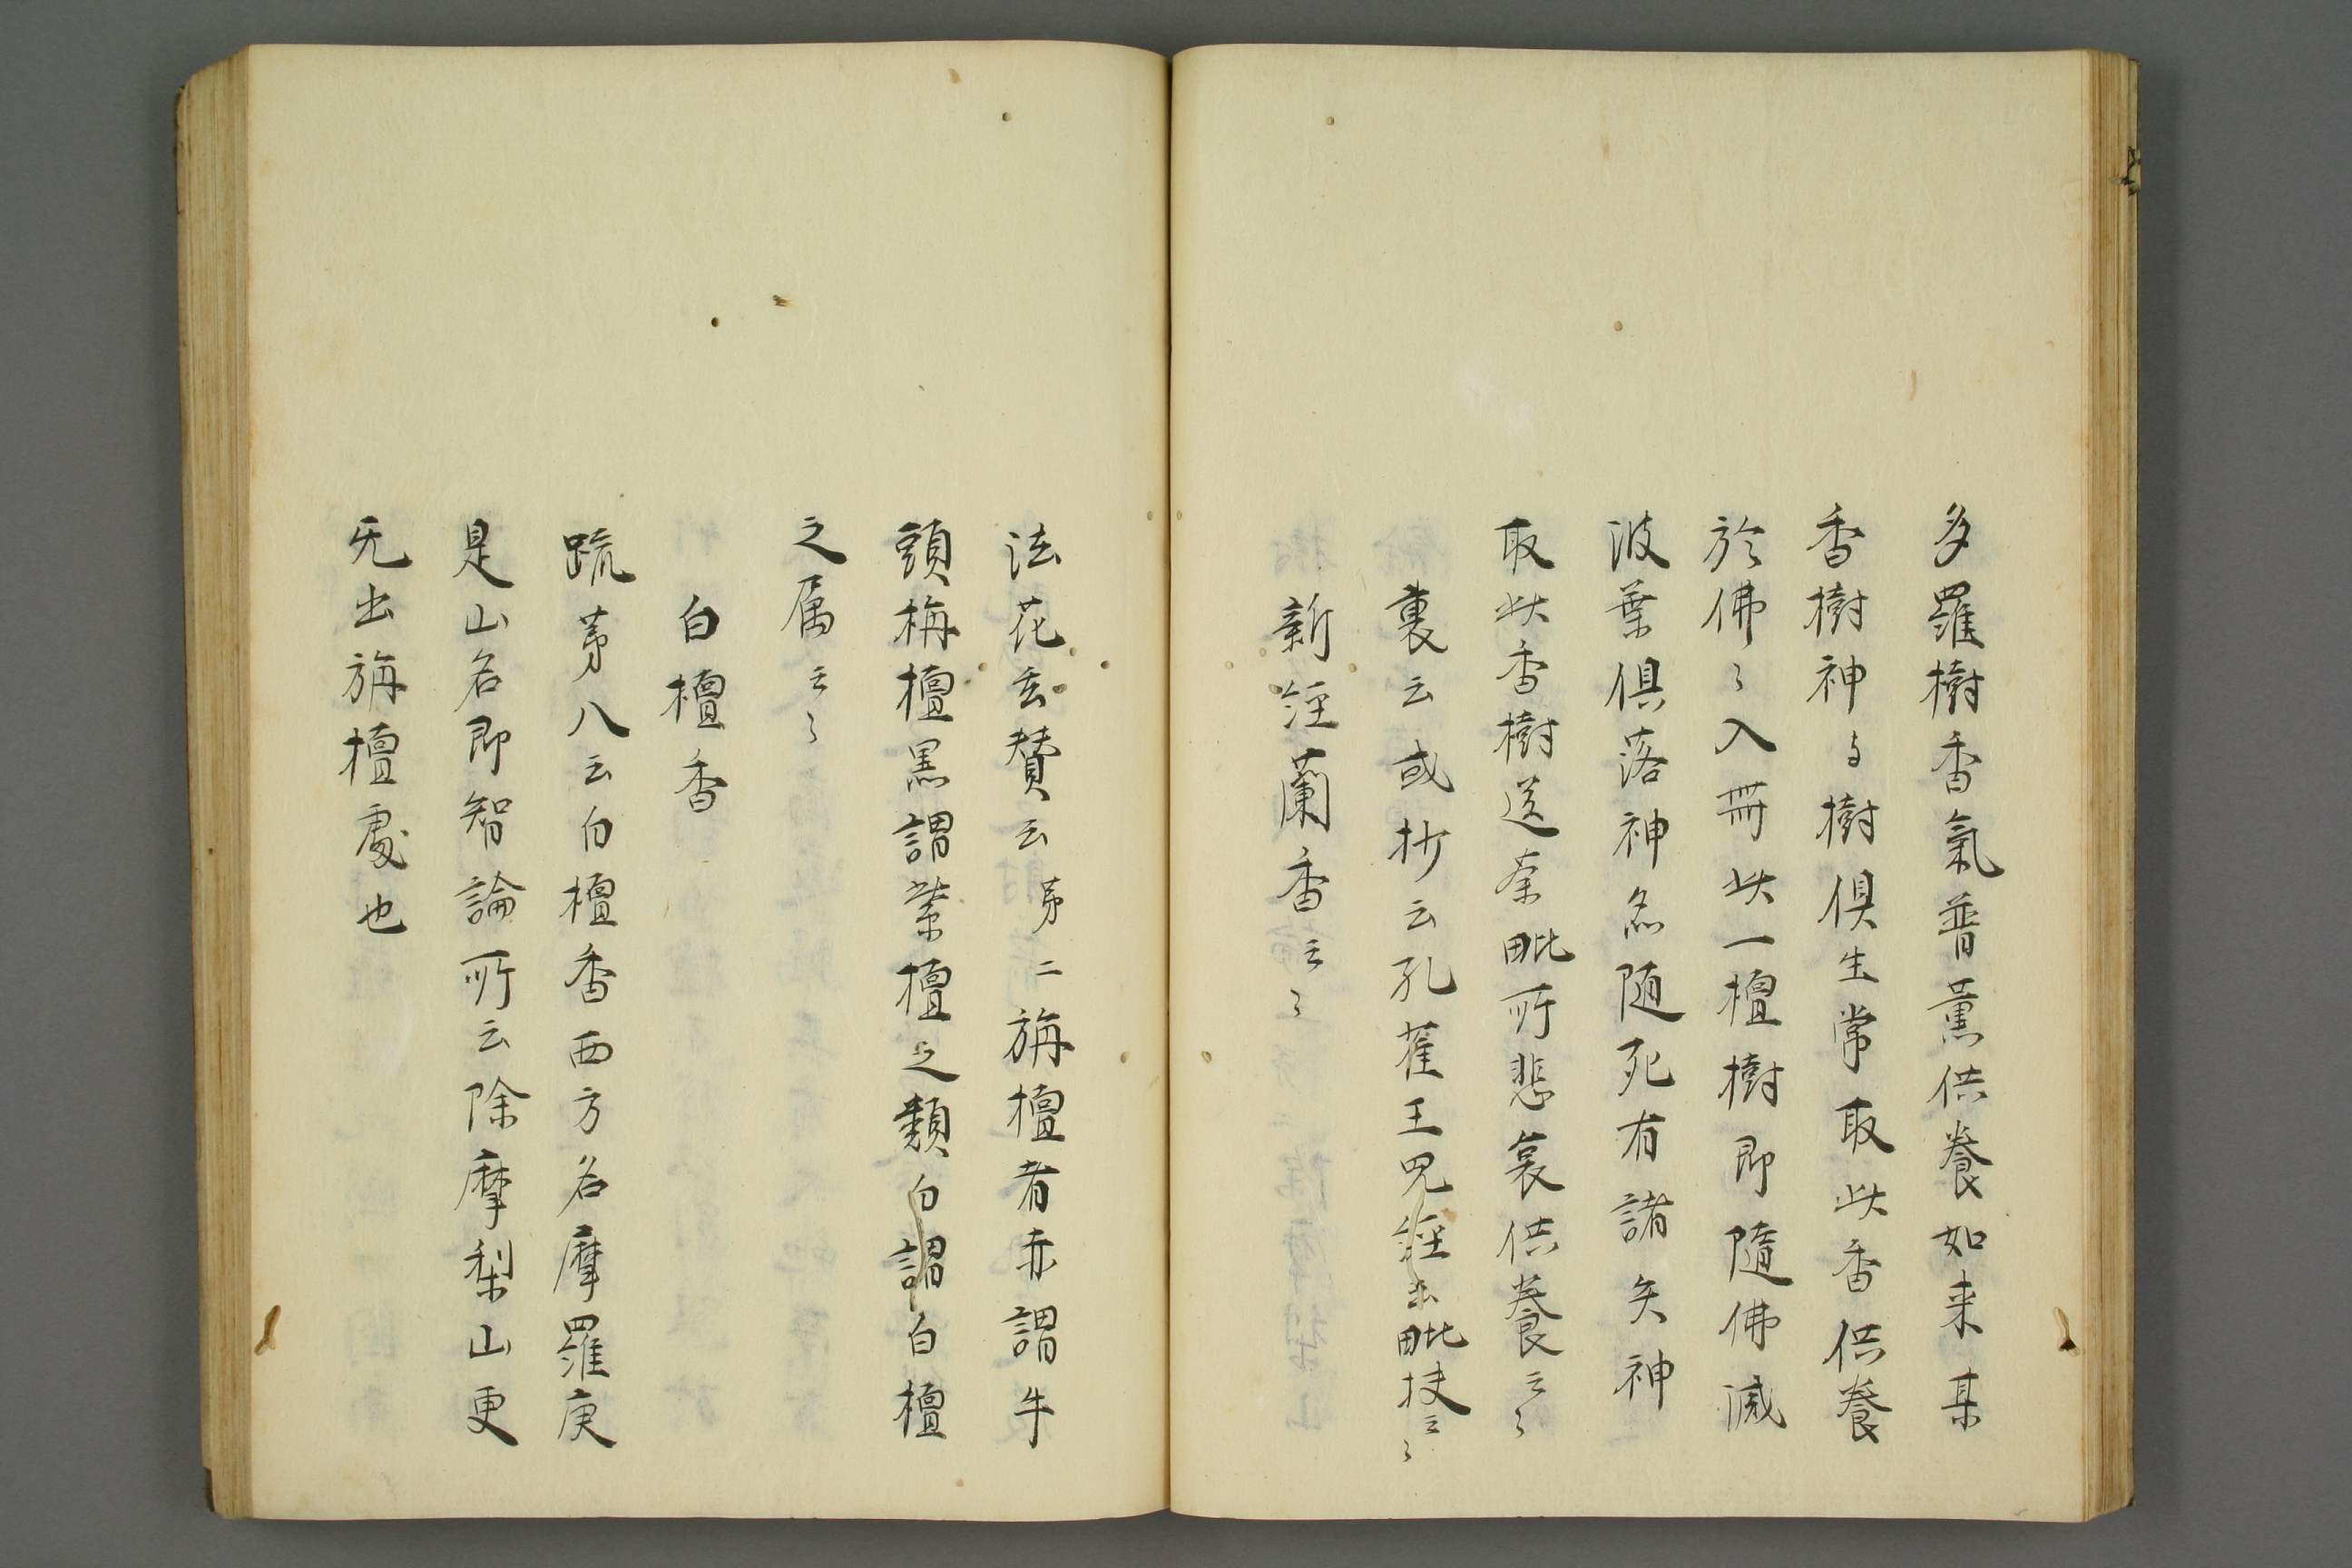 多羅樹香氣普薫供養如来其
香樹神与樹倶生常取此香供養
於佛〻入冊此一檀樹即隨佛滅
波葉倶落神名随死有諸矢神
取此香樹送荼毗所悲哀供養云〻
裏云或抄云孔雀王咒経云毗扶云〻
新経蘭香云〻
法花玄賛云第二栴檀者赤謂牛
頭栴檀黒謂紫檀之類白謂白檀
之属云〻
白檀香
疏第八云白檀香西方名摩羅庚
是山名即智論所云除摩梨山更
无出栴檀處也